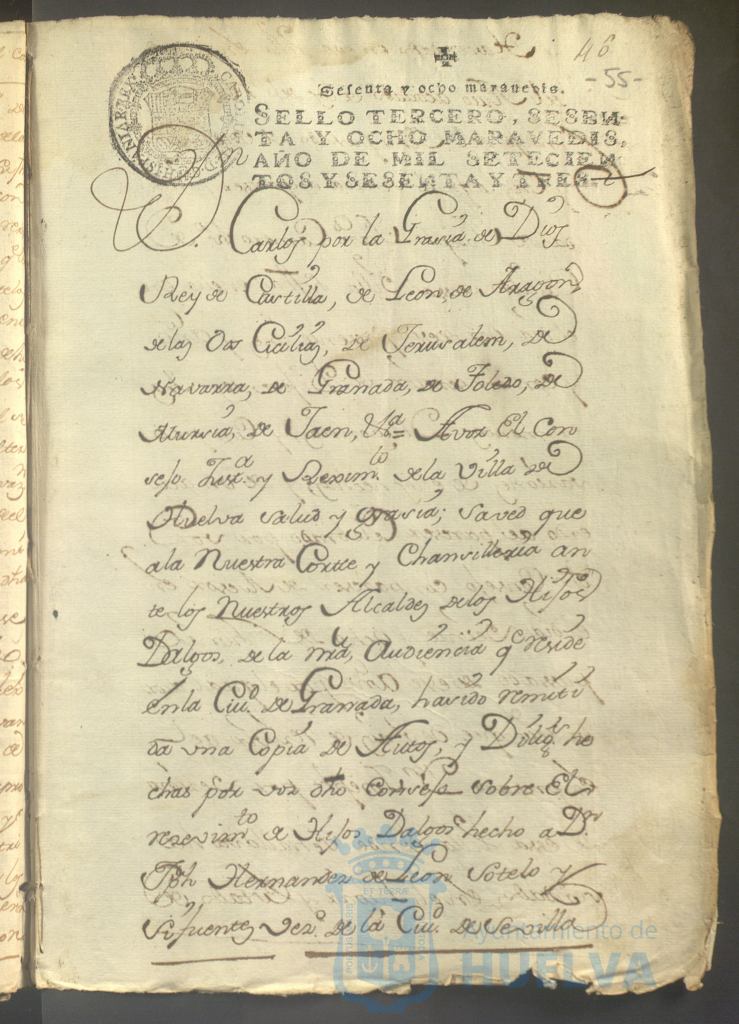 46
-55-
Sesenta y ocho maravedis.
SELLO TERCERO, SESEN-
TA Y OCHO MARAVEDIS,
AÑO DE MIL SETECIEN-
TOS Y SESENTA Y TRES.
Carlos por la Grasia de Dios
Rey de Castilla, de Leon, de Aragon,
de las Dos Cicilias, de Jerusalem, de
Navarra, de Granada, de Toledo, de
Mursia, de Jaen, &a = A vos El Con
sejo Just.a y Reximto de la Villa de
Huelva salud y grasia; saved que
a la Nuestra Cortte y Chansilleria an
te los Nuestros Alcaldes de los Hijos
Dalgos, de la nra, Audiencia q reside
en la Ciud de Granada, havido remiti
da una Copia de Autos, y Diligs he
chas por vos dho Consejo sobre El
resevimto de Hijos Dalgos hecho a Dn
Jph Hernandez de Leon Sotelo y
Sifuentes vezo de la Ciud de Sevilla
Ayuntamiento de
HUELVA